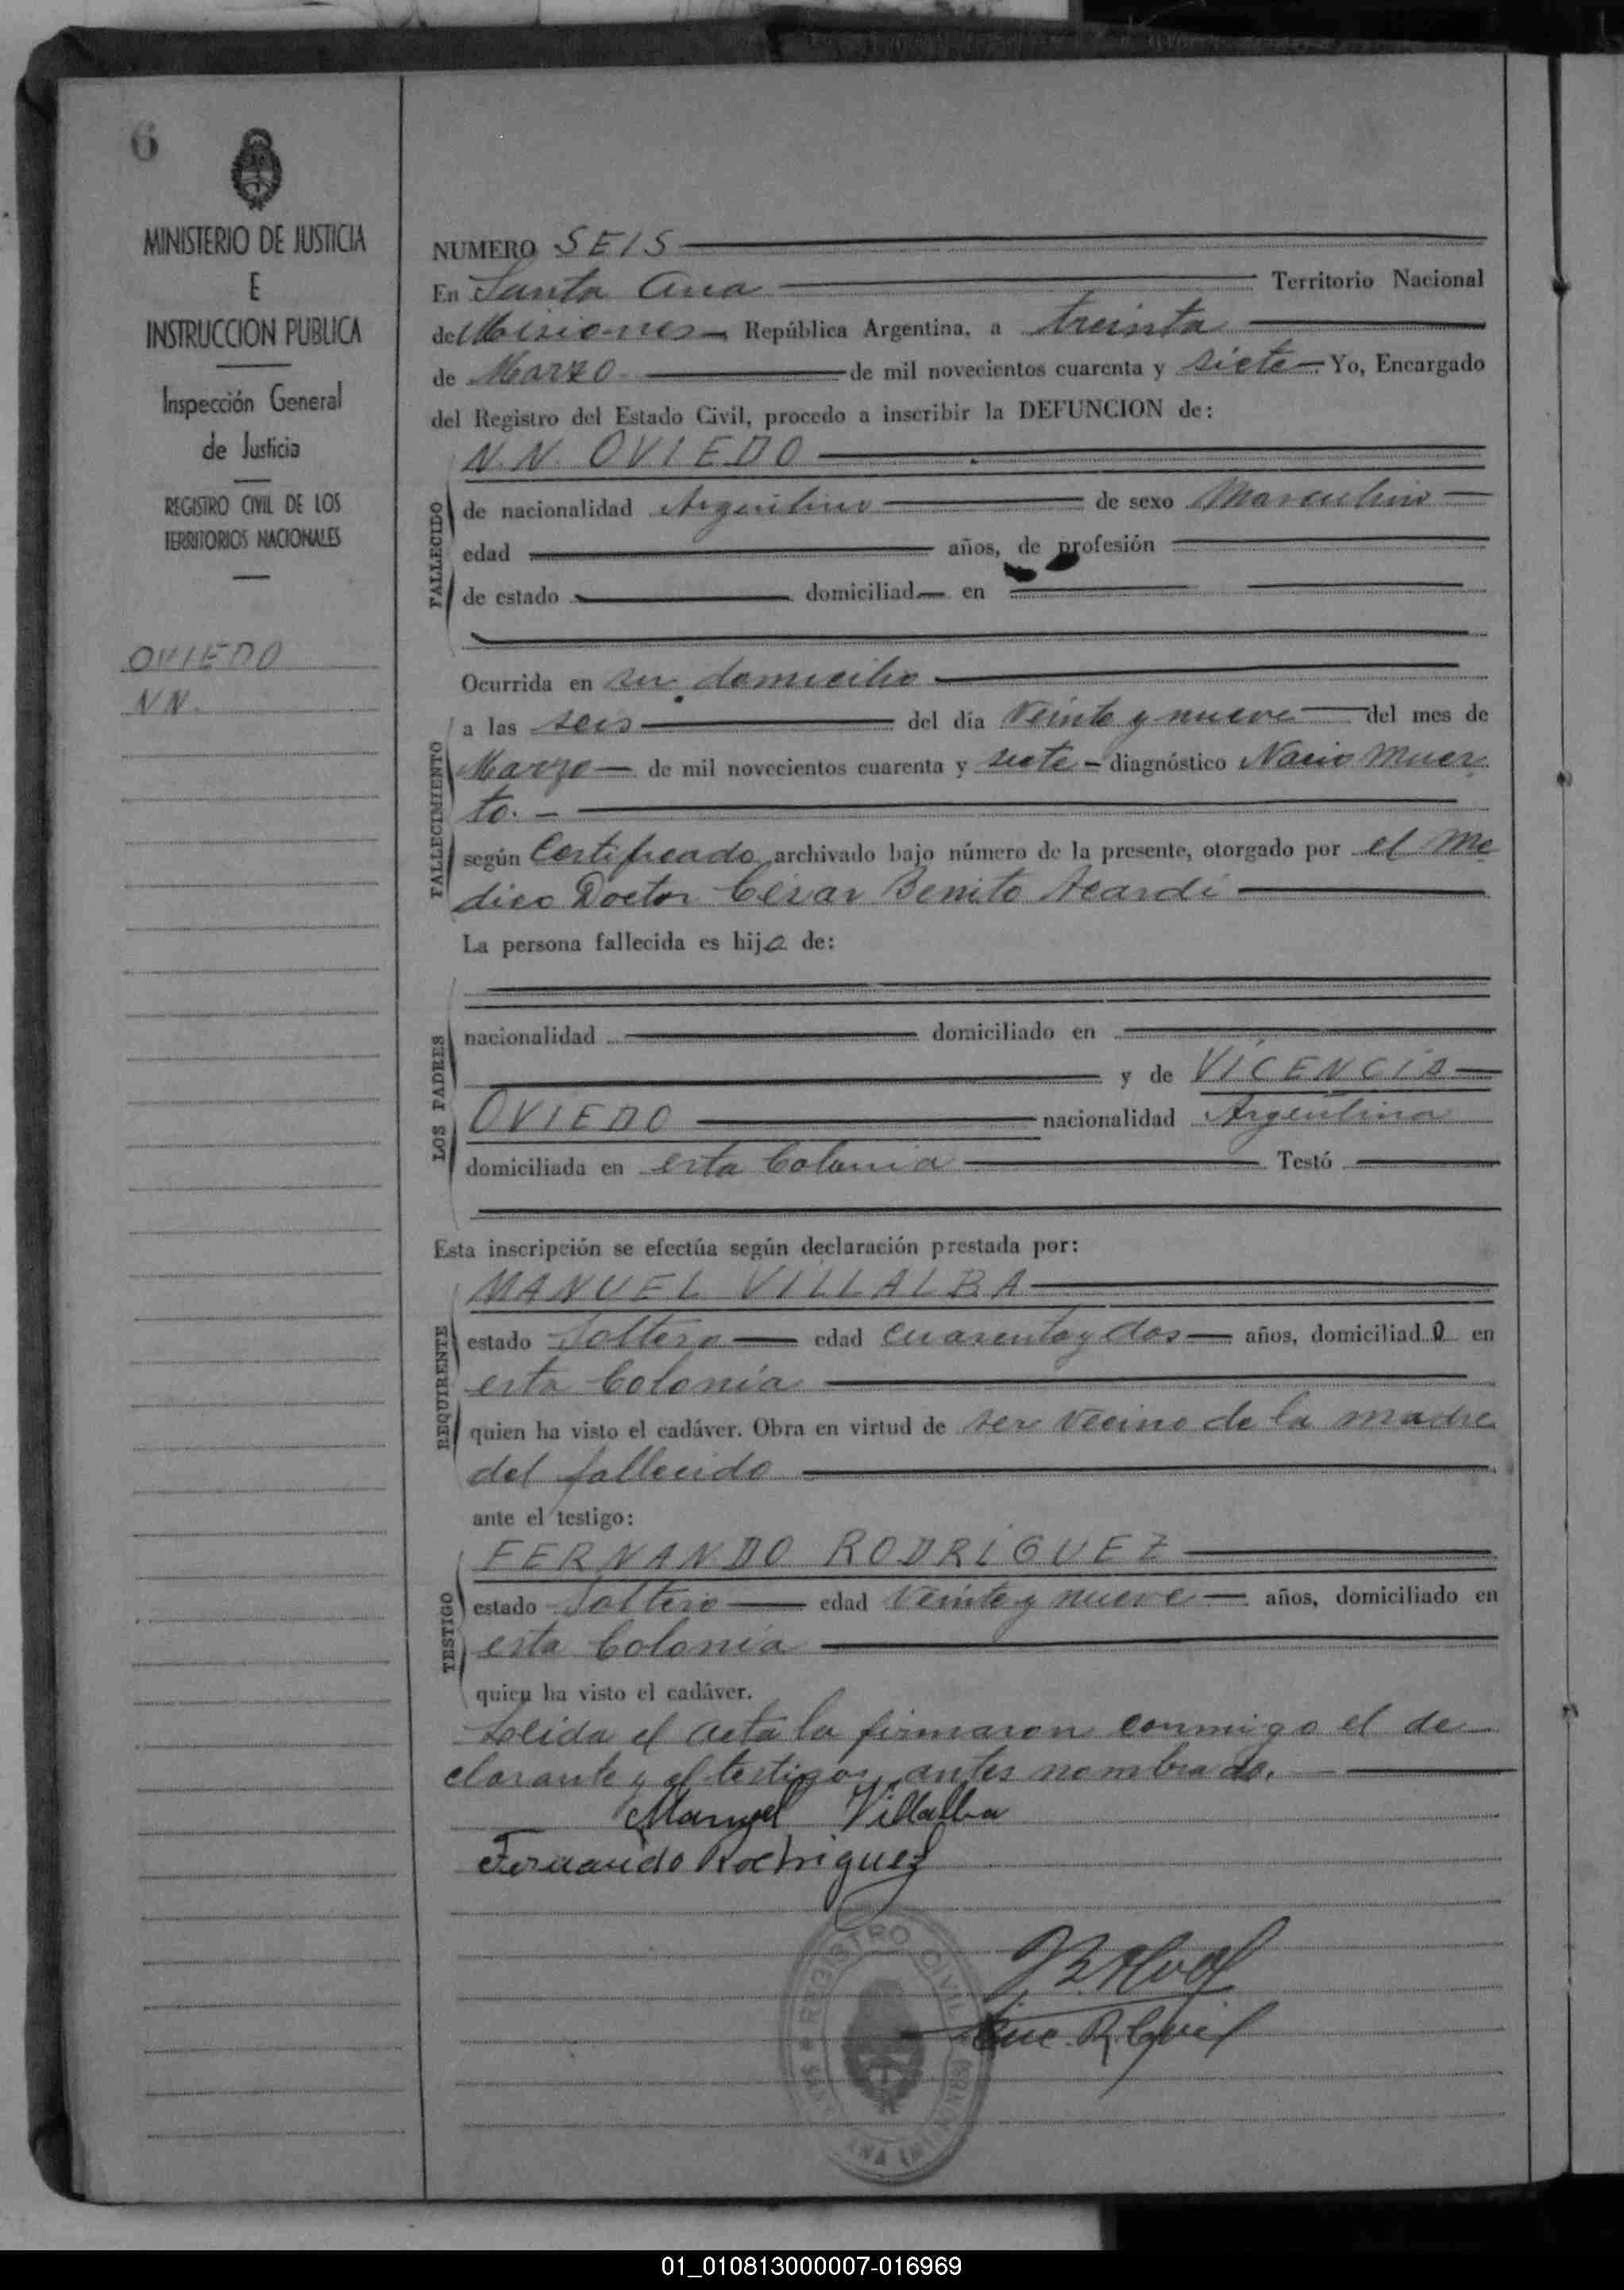 6
MINISTERIO DE JUSTICIA
E
INSTRUCCION PUBLICA
Inspección General
de Justicia
REGISTRO CIVIL DE LOS
TERRITORIOS NACIONALES
OVIEDO
N N.
NUMERO SEIS
En Santa Ana Territorio Nacional
de Misiones República Argentina, a treinta
de Marzo de mil novecientos cuarenta y siete. Yo, Encargado
del Registro del Estado Civil, procedo a inscribir la DEFUNCION de:
N. N. OVIEDO
FALLECIDO
de nacionalidad Argentino de sexo Masculino
edad años, de profesión
de estado domiciliad en
Ocurrida en su domicilio
FALLECIMIENTO
a las seis del día Veinte y nueve del mes de
Marzo de mil novecientos cuarenta y siete diagnóstico Nacio muer
to.
según Certificado archivado bajo número de la presente, otorgado por el Me
dico Doctor César Benito
La persona fallecida es hijo de:
LOS PADRES
nacionalidad domiciliado en
y de VICENCIA
OVIEDO nacionalidad Argentina
domiciliada en esta Colonia Testó
Esta inscripción se efectúa según declaración prestada por:
REQUIRENTE
MANUEL VILLALBA
estado Soltero edad cuarenta y dos años, domiciliado en
esta Colonia
quien ha visto el cadáver. Obra en virtud de ser vecino de la madre
del fallecido
ante el testigo:
TESTIGO
FERNANDO RODRIGUEZ
estado Soltero edad Veinte y nueve años, domiciliado en
esta Colonia
quien ha visto el cadáver.
Leida el acta la firmaron conmigo el de
clarante y el testigo, antes nombrado.
Manuel Villalba
Fernando Rodriguez
REGISTRO CIVIL
Enc. R. Civil
01_010813000007-016969